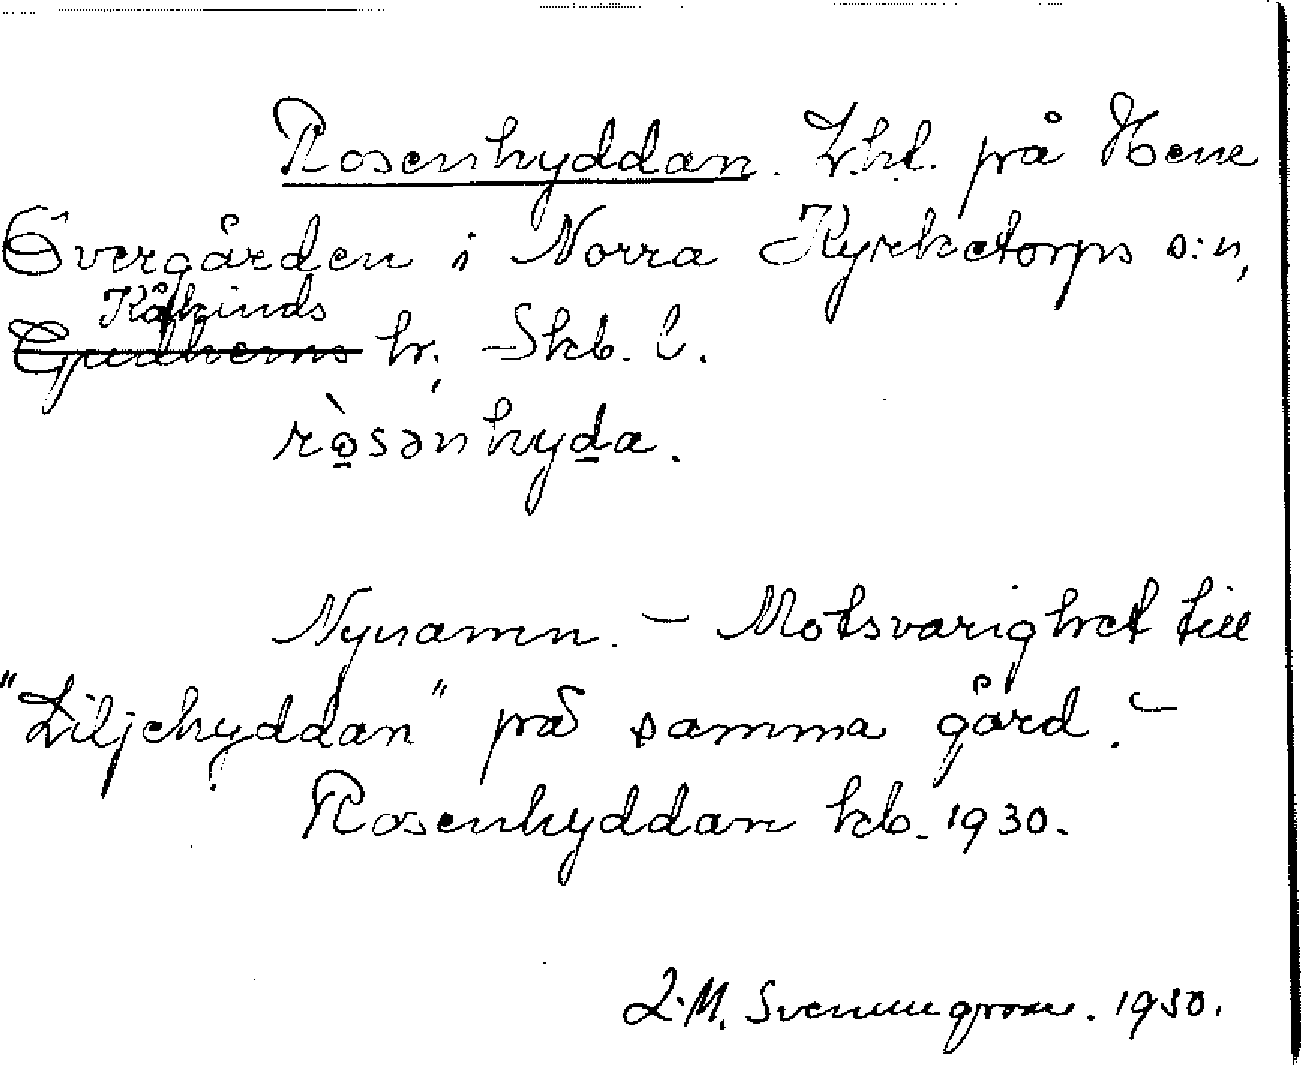 Rosenhyddan. Lht. på Hene
Övergården i Norra Kyrketorps s:n,
Kåkinds
Gudhems hr, Skb. l.
rò̱sənhyḏa.
Nynamn. – Motsvarighet till
"Liljehyddan" på samma gård. –
Rosenhyddan kb. 1930.
L.M. Svenungsson. 1950.